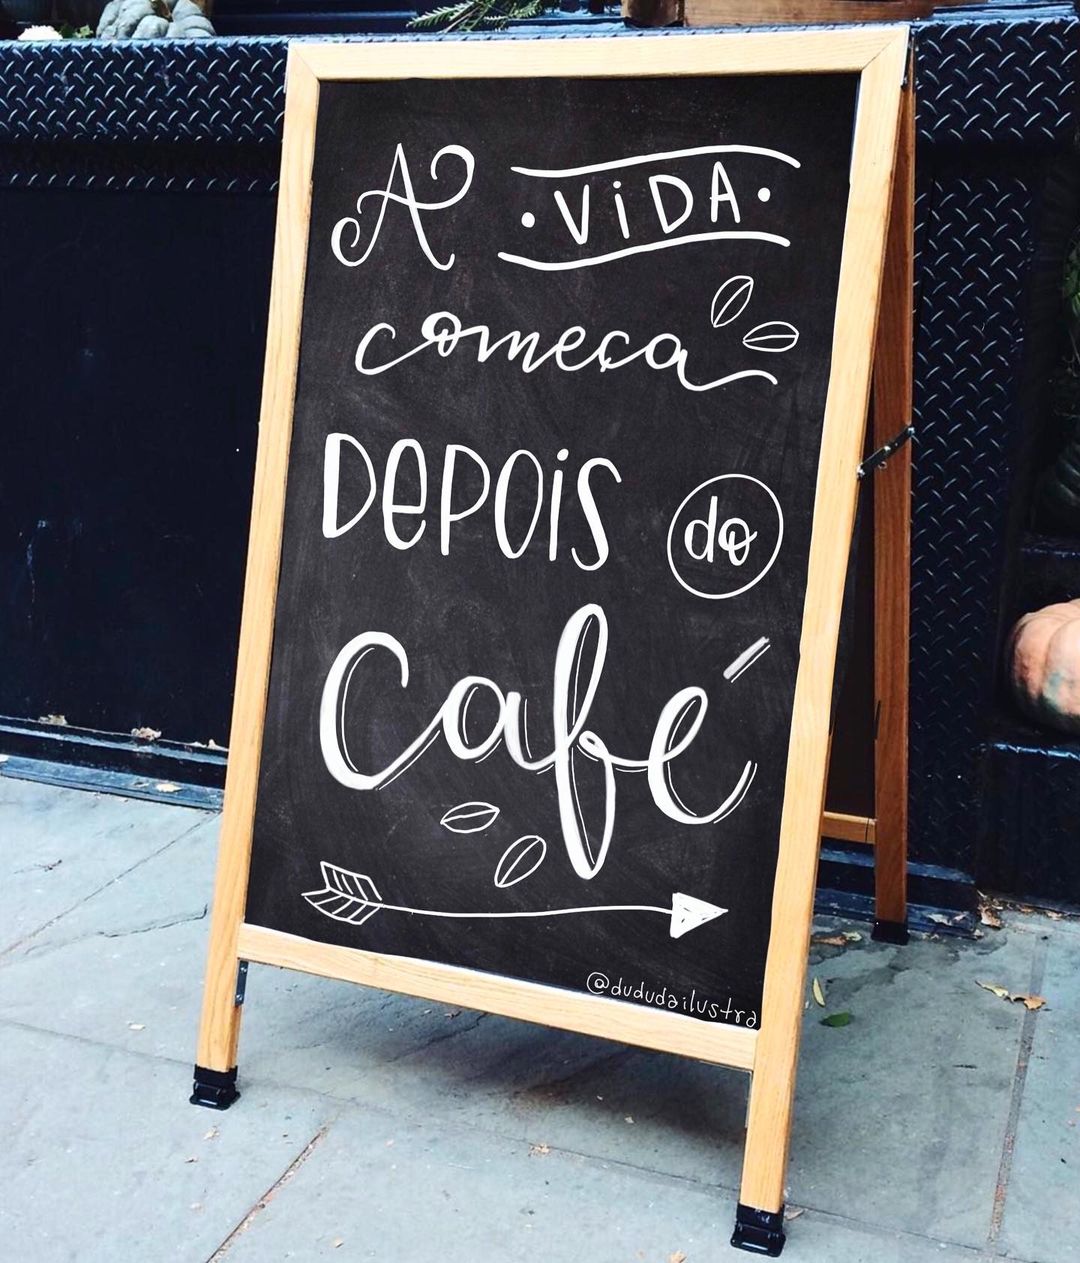 A VIDA
começa
DEPOIS do
Café
@dududailustra